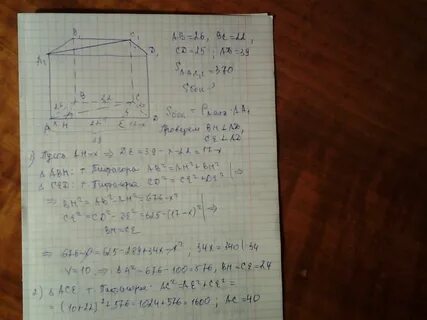 B₁
C₁
A₁
D₁
B
22
C
26
25
A
H
E
D
39
AB=26, BC=22,
CD=25; AD=39
S = 370
Sбок - ?
Sбок = Pосн · AA₁
Проведем BH⊥AD,
CE⊥AD
1) Пусть AH=x ⇒ DE=39-22-x=17-x
Δ ABH: т Пифагора AB²=AH²+BH²
Δ CED: т Пифагора CD²=CE²+DE²
⇒ BH²=AB²-AH²=676-x²
CE²=CD²-DE²=625-(17-x)²
BH=CE
⇒ 676-x²=625-289+34x-x², 34x=340 |:34
x=10, ⇒ BH²=676-100=576, BH=CE=24
2) Δ ACE т Пифагора: AC²=AE²+CE²=
=(10+22)²+576=1024+576=1600; AC=40